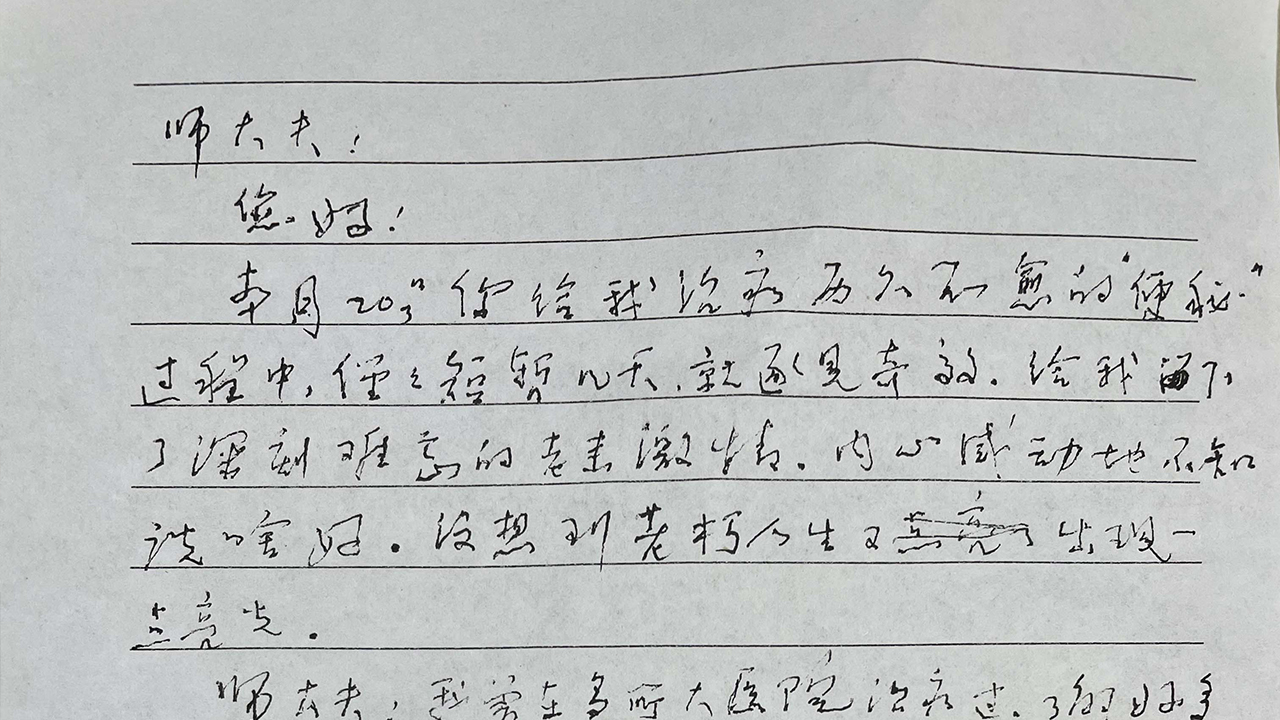 师大夫:
您好!
本月20号你给我治疗历久不愈的"便秘"
过程中,仅仅短暂几天,就逐见奇效。给我留下
了深刻难忘的老来激情。内心感动地不知
说啥好。没想到老朽人生又点亮了出现一
点亮光。
师大夫:我曾在多所大医院治疗过。了的好多